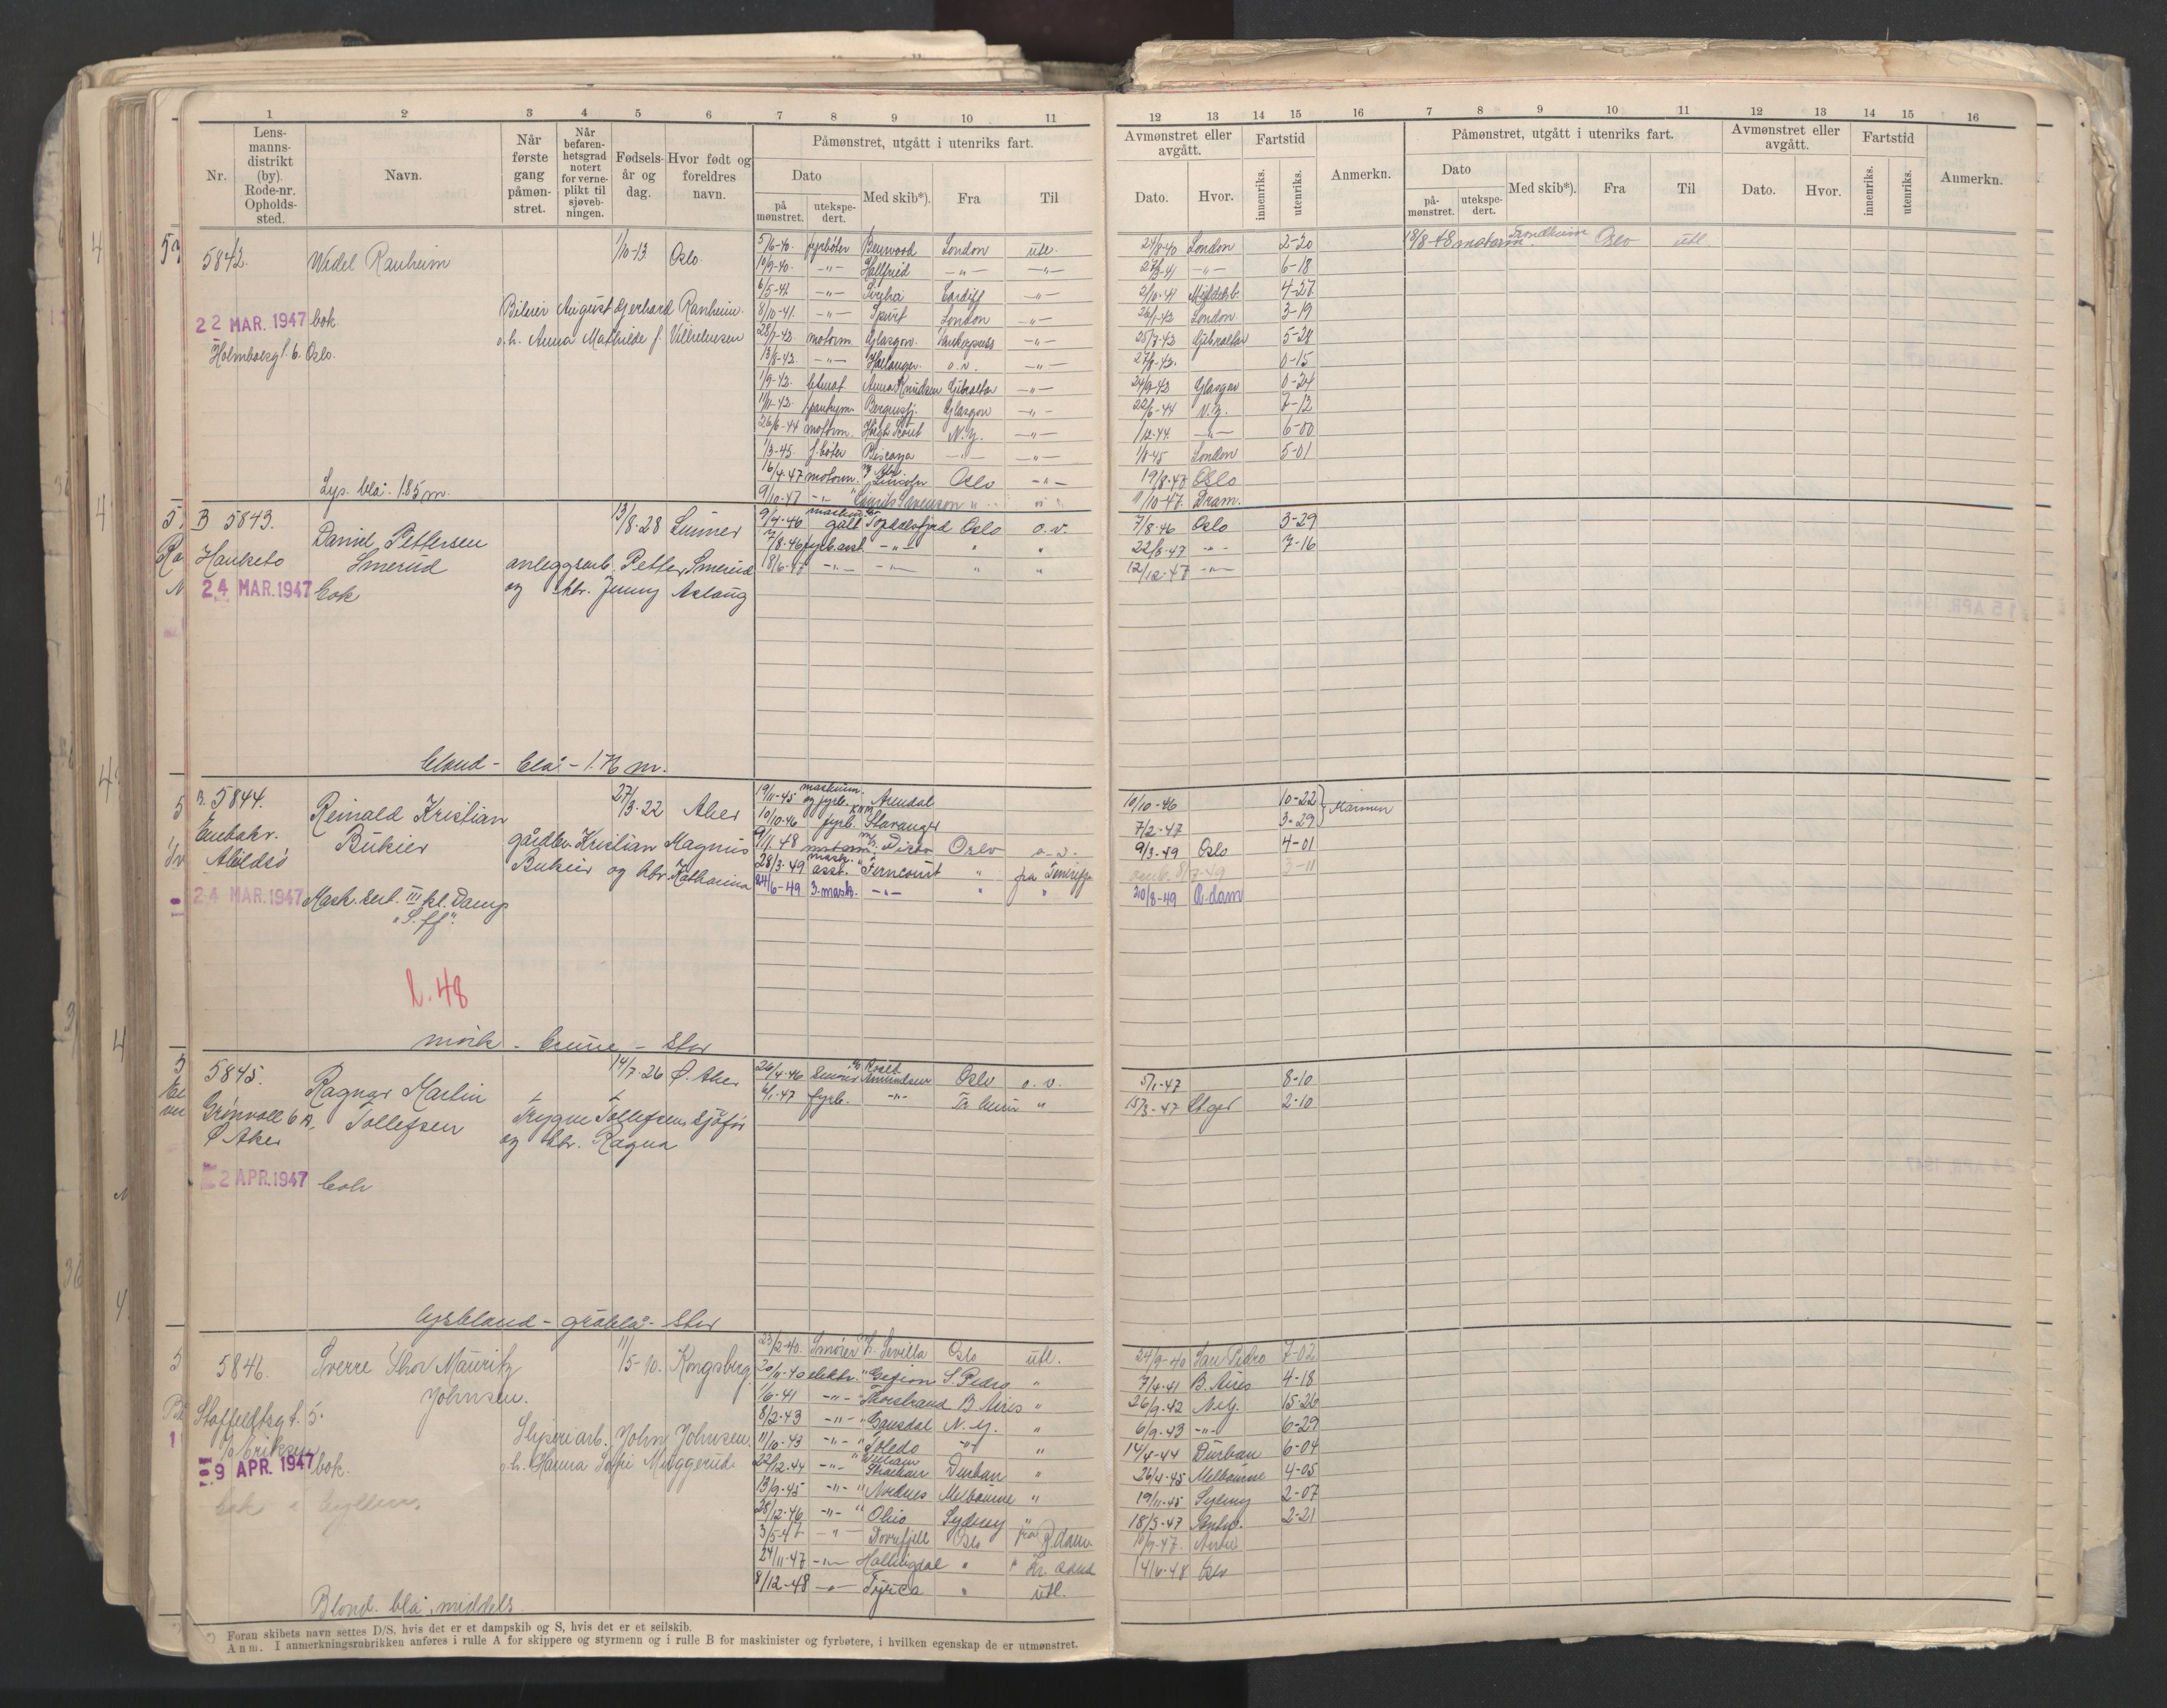 1 2 3 4 5 6 7 8 9 10 11 12 13 14 15 16 7 8 9 10 11 12 13 14 15 16
Nr.
Lens-
manns-
distrikt
(by).
Rode-nr.
Opholds-
sted.
Navn.
Når
første
gang
påmøn-
stret.
Når
befaren-
hetsgrad
notert
for verne-
plikt til
sjøveb-
ningen.
Fødsels-
år og
dag.
Hvor født og
foreldres
navn.
Påmønstret, utgått i utenriks fart.
Dato
på
mønstret.
utekspe-
dert.
Med skib*).
Fra
Til
Avmønstret eller
avgått.
Dato.
Hvor.
Fartstid
innenriks.
utenriks.
Anmerkn.
Påmønstret, utgått i utenriks fart.
Dato
på-
mønstret.
utekspe-
dert.
Med skib*).
Fra
Til
Avmønstret eller
avgått.
Dato.
Hvor.
Fartstid
innenriks.
utenriks.
Anmerkn.
5842. Wedel Ranheim 1/10-13 Oslo.
22 MAR. 1947 bok.
Holmboesgt. 6. Oslo.
Bileier August Gerhard Ranheim
o.h. Anna Mathilde f. Vilhelmsen
Lys. blå. 1.85 m.
5/6-40. fyrbøter London utl. 24/8-40 London 2-20
10/9-40. -"- Hallfried -"- -"- -"- 6-18
6/5-41. -"- Cardiff -"- 4-27
8/10-41. -"- Spurt London -"- 26/1-42 London. 3-19
28/1-42. motorm. Glasgow. -"- 25/7-42 Gibraltar 5-28
13/8-42. -"- o.v. -"- 27/8-42. 0-15
1/9-42. Anna Knudsen Gibraltar -"- 24/9-42 Glasgow 0-24
11/11-42. Glasgow -"- 22/6-44 N.Y.
26/6-44 motorm. Høegh Scout N.Y. -"- -"- 6-00
1/3-45. f.bøter Biscaya -"- -"- London 5-01
16/4-47 motorm. Oslo -"- 19/8-47 Oslo
9/10-47 -"- " " 11/10-47. Dram.
19/8-48 motorm. Trondheim Oslo utl.
B 5843. Daniel Pettersen 13/8-28 Lunner
Hauketo Smerud anleggsarb. Petter Smerud
24 MAR. 1947 bok og hbr. Jenny Aslaug
9/4-46 Topdalsfjord Oslo o.v. 7/8-46 Oslo 3-29
7/8-46 fyrb.asst. -"- " " 22/3-47 -"- 7-16
18/6-47 -"- -"- " " 12/12-47 -"-
blond - blå - 1.76 m.
B. 5844. Reinald Kristian 27/3-22 Aker
Bukier gårdbr. Kristian Magnus
Abildsø Bukier og hbr. Katharina
24 MAR. 1947 Mask.sert. III kl. Damp
"S. ff".
L. 48
19/11-45 maskinm. og fyrb. Arendal 10/10-46 10-22 Marinen
10/10-46 fyrb. KNM Stavanger 7/2-47 3-29
9/11. 48 motorm. Oslo o.v. 9/3-49 Oslo 4-01
28/3-49 mask. asst. Ferncourt " fra 3-11
24/6-49 3. mask. -"- " " 30/8-49 R.dam
mørk - brune - stor
5845. Ragnar Martin 14/7-26 Ø. Aker
Grønvoll 6 A, Tollefsen Trygve Tollefsen, sjåfør
Ø Aker og hbr. Ragna
2 APR. 1947 bok
26/4-46 Roald Amundsen Oslo o.v. 5/1-47 8-10
6/1-47 fyrb. -"- " 15/3-47 2-10
lysblond - gråblå - stor
5846. Sverre Thor Mauritz 11/5-10. Kongsberg
Johnsen.
Staffeldtsgt. 5.
% Eriksen
Sliperiarb. John Johnsen.
9 APR. 1947 bok. o.h. Hanna Sofie Muggerud.
23/2-40. Smører Sevilla Oslo utl. 24/9-40 San Pedro 7-02
20/11-40 elektr. " Gefion S. Pedro " 7/4-41 B. Aires 4-18
1/6-41 -"- Thorstrand B. Aires " 26/9-42 N.Y. 15-26
8/2-43 -"- Gausdal N.Y. " 6/9-43 -"- 6-29
11/10-43 -"- " Toledo -"- " 14/4-44 Durban 6-04
22/12-44 -"- " William Strachan Durban " 26/4-45 Melbourne 4-05
13/9-45 -"- " Nordnes Melbourne " 19/11-45 Sydney 2-07
28/12-46 -"- " Ohio Sydney " 18/3-47 2-21
3/5-47 -"- Dovrefjell Oslo fra R.dam. 10/9-47.
24/11-47 -"- Hallingdal " " Kr. sand 14/6-48 Oslo
8/12-48 -"- " utl.
Blond. blå, middels.
Foran skibets navn settes D/S, hvis det er et dampskib og S, hvis det er et seilskib.
Anm. I anmerkningsrubrikken anføres i rulle A for skippere og styrmenn og i rulle B for maskinister og fyrbøtere, i hvilken egenskap de er utmønstret.